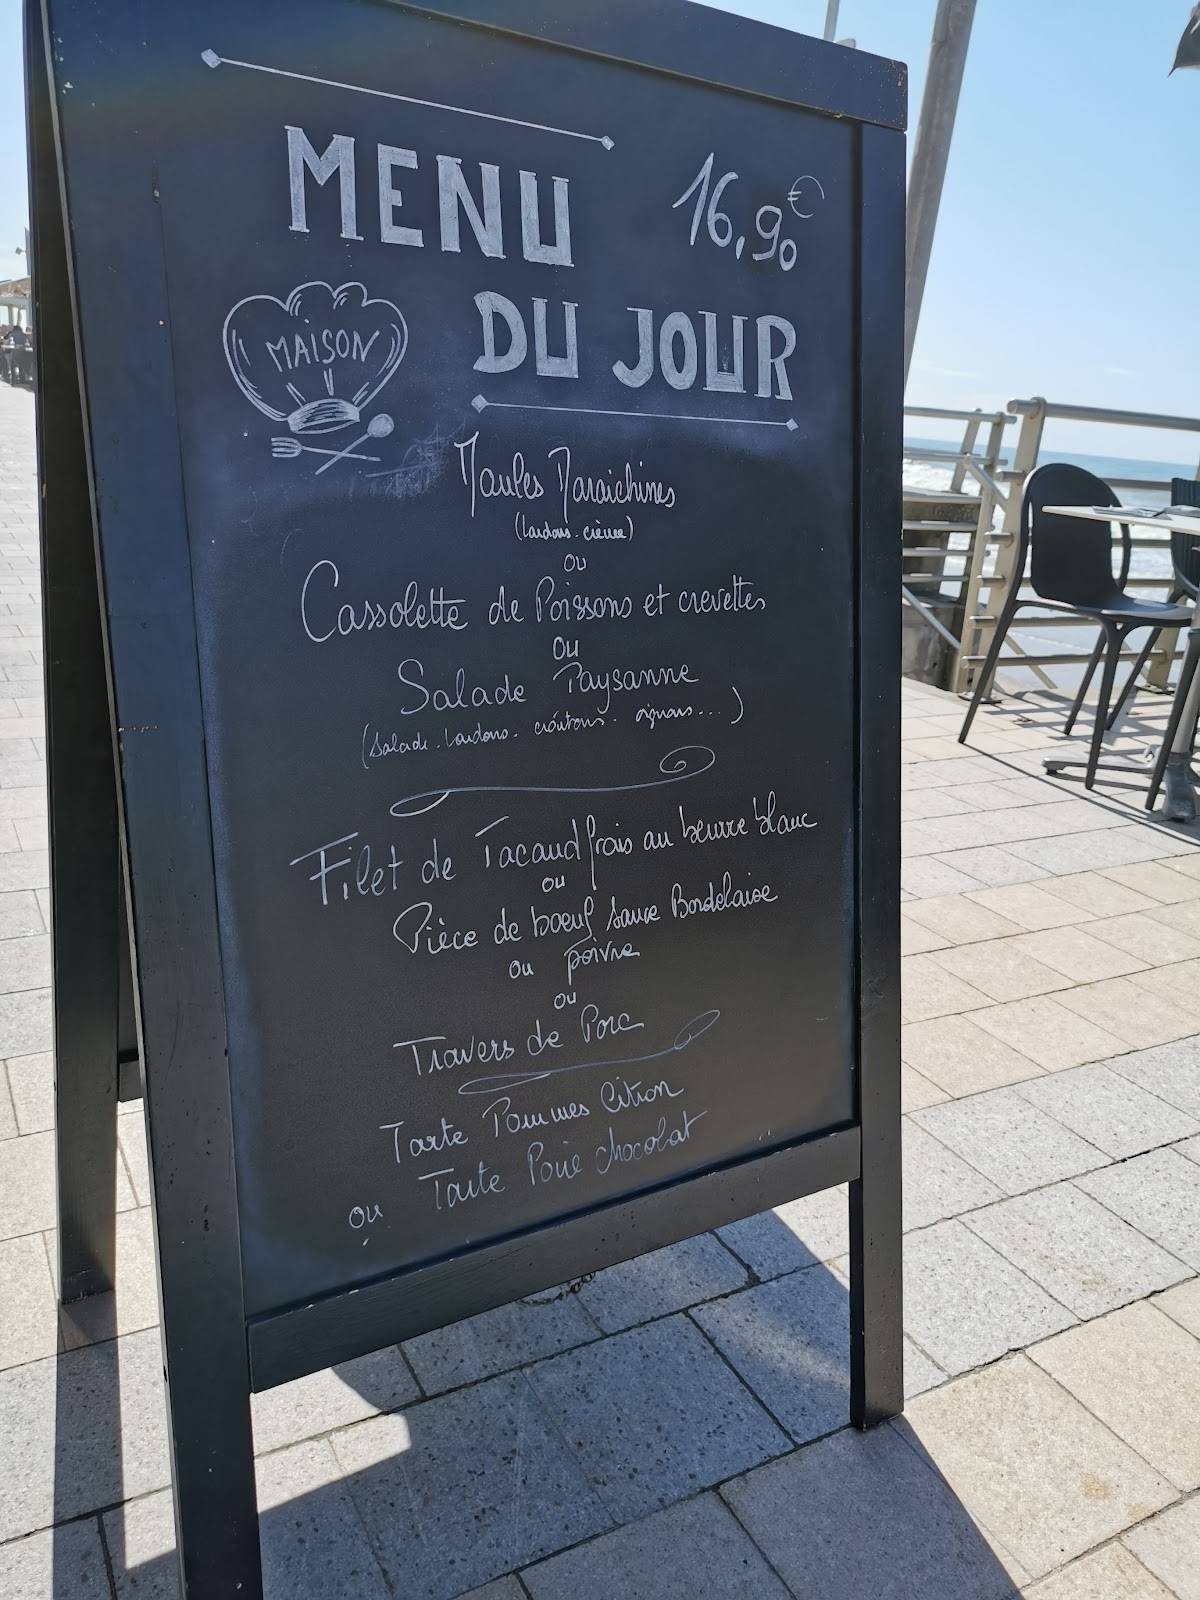 MENU 16,90€
MAISON
DU JOUR
Moules Maraichines
(lardons - crème)
ou
Cassolette de Poissons et crevettes
ou
Salade Paysanne
(salade - lardons - croûtons - oignons...)
Filet de Tacaud frais au beurre blanc
ou
Pièce de boeuf sauce Bordelaise
ou poivre
ou
Travers de Porc
Tarte Pommes Citron
ou Tarte Poire chocolat